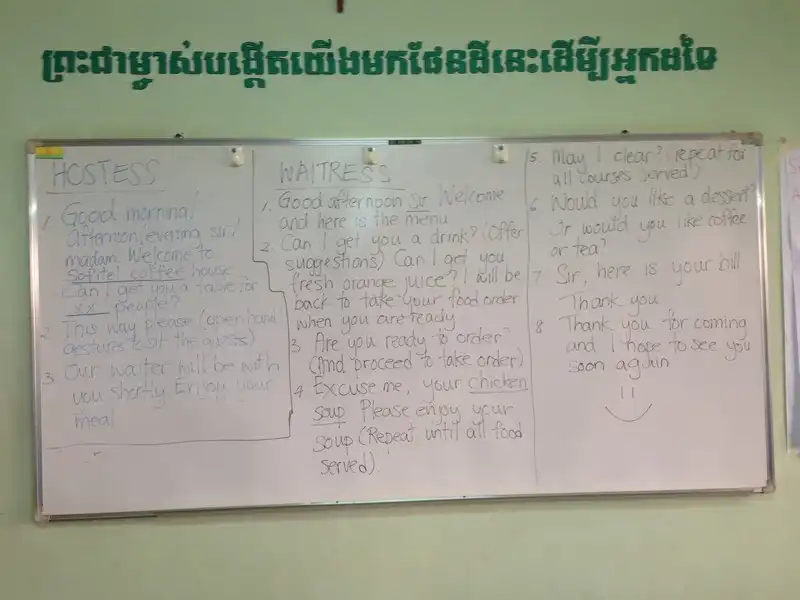 ព្រះជាម្ចាស់បង្កើតយើងមកផែនដីនេះដើម្បីអ្នកដទៃ
HOSTESS
1. Good morning/
afternoon/evening sir/
madam. Welcome to
Sofitel coffee house
Can I get you a table for
xx people?
2 This way please (open hand
gestures to sit the guests)
3. Our waiter will be with
you shortly Enjoy your
meal
WAITRESS
1. Good afternoon Sir Welcome
and here is the menu
2. Can I get you a drink? (Offer
suggestions) Can I get you
fresh orange juice? I will be
back to take your food order
when you are ready
3 Are you ready to order?
(And proceed to take order)
4 Excuse me, your chicken
soup Please enjoy your
soup (Repeat until all food
served)
5. May I clear? (repeat for
all courses served)
6 Would you like a dessert?
Or would you like coffee
or tea?
7 Sir, here is your bill
Thank you
8 Thank you for coming
and I hope to see you
soon again